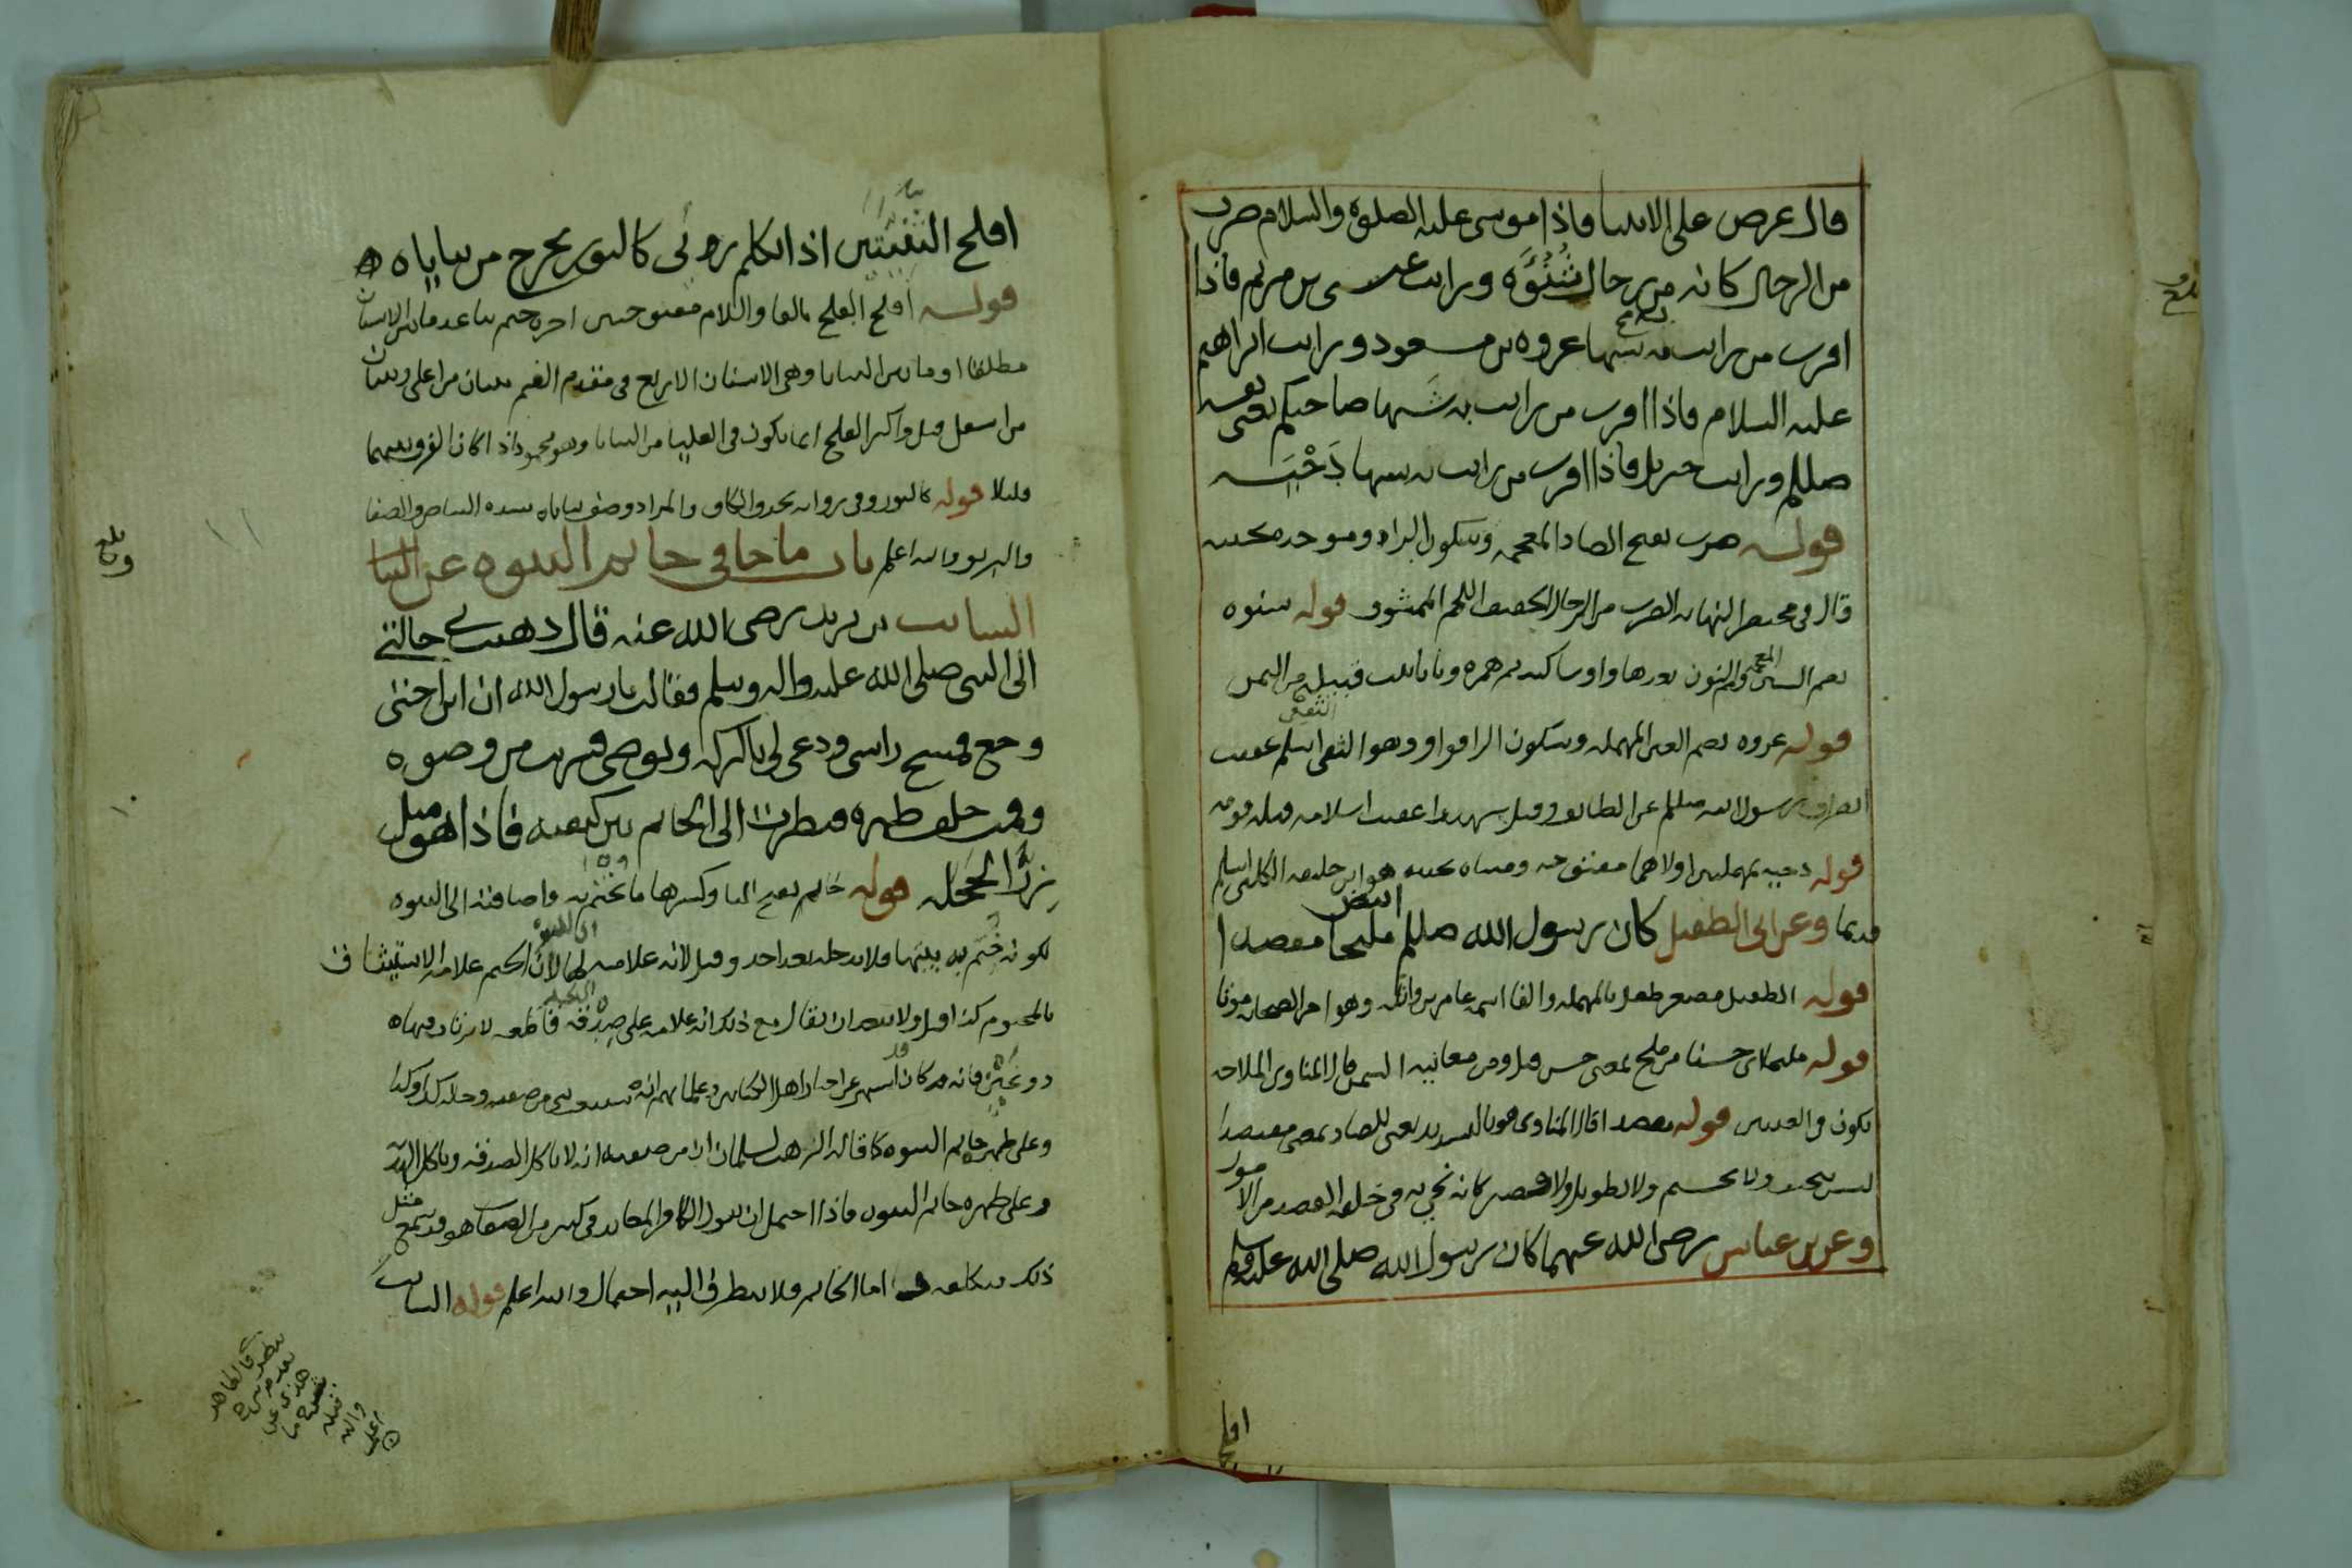 قال عرض علي الانبيا فاذا موسى عليه الصلوة والسلام ضرب
من الرجال كانه من رجال شنوءه ورايت عيسى بن مريم فاذا
اقرب من رايت به شبها عروه بن مسعود ورايت ابراهيم
عليه السلام فاذا اقرب من رايت به شبها صاحبكم يعني نفسه
صللم ورايت جبريل فاذا اقرب من رايت به شبها دَحْيَه
قوله ضرب بفتح الضاد المعجمه وسكون الراء وموحده مخففه
قال في مختصر النهايه الضرب من الرجال الخفيف اللحم الممشوق قوله شنوه
بضم الشين المعجمه والنون بعدها واو ساكنه ثم همزه وتا تانيث قبيله من اليمن
قوله عروه بضم العين المهمله وسكون الرا فواو وهو الثقفي اسلم عقيب
انصراف رسول الله صللم عن الطايف وقتل شهيدا عقيب اسلامه قتله قومه
قوله دحيه بمهملتين اولاهما مفتوحه ومثناه تحتيه هو ابن خليفه الكلبي اسلم
قديما وعن ابي الطفيل كان رسول الله صللم ابيض مليحا مقصدا
قوله الطفيل مصغر طفل بالمهمله والفا اسمه عامر بن واثله وهو اخر الصحابه موتا
قوله مليحا اي حسنا من ملح بمعنى حسن قيل ومن معانيه السمن قال المناوي الملاحه
تكون في العينين قوله مقصدا قال المناوي هو بالتشديد يعني للصاد بمعنى مقتصدا
ليس بجسيم ولا نحيف ولا طويل ولا قصير كانه نحي به في خلقه القصد من الامور
وعن بن عباس رضي الله عنهما كان رسول الله صلى الله عليه وسلم
افلج
افلج الثنيتين اذا تكلم روئى كالنور يخرج من ثناياه ه
قوله افلج الفلج بالفا واللام مفتوحتين اخره جيم تباعد ما بين الاسنان
مطلقا او ما بين الثنايا وهي الاسنان الاربع في مقدم الفم ثنتان من اعلى وثنتان
من اسفل قيل واكثر الفلج انما يكون في العليا من الثنايا وهو محمود اذا كان الفرق بينهما
قليلا قوله كالنور وفي روايه بحذف الكاف والمراد وصف ثناياه بشده البياض والصفا
والبريق والله اعلم باب ما جا في خاتم النبوه عن السا
السايب بن يزيد رضى الله عنه قال ذهبت بي خالتي
الى النبي صلى الله عليه واله وسلم فقالت يا رسول الله ان ابن اختي
وجع فمسح راسي ودعى لي بالبركه وتوضى فشربت من وضوه
وقمت خلف ظهره فنظرت الى الخاتم بين كتفيه فاذا هو مثل
زِرِّ الحَجَله قوله خاتم بفتح التا وكسرها ما يختم به واضافته الى النبوه
لكونه ختم به بيتها فلا يدخله بعد احد وقيل لانه علامه لها لان الختم علامه الاستيثاق
بالمختوم كذا قيل ولا يبعد ان يقال مع ذلك انه علامه على صدقه قاطعه لا يرتاب فيها
ذو عين فانه قد كان اشتهر عن احبار اهل الكتابين وعلمايهم انه سيبعث نبي من صفته وحاله كذا وكذا
وعلى ظهره خاتم النبوه كما قاله الراهب لسلمان ان من صفته انه لا ياكل الصدقه وياكل الهديه
وعلى ظهره خاتم النبوه فاذا احتمل ان يقول الكافر المعاند في كثير من الصفات هو قد يجمع مثل
ذلك بتكلف اما الخاتم فلا يتطرق اليه احتمال والله اعلم قوله السايب